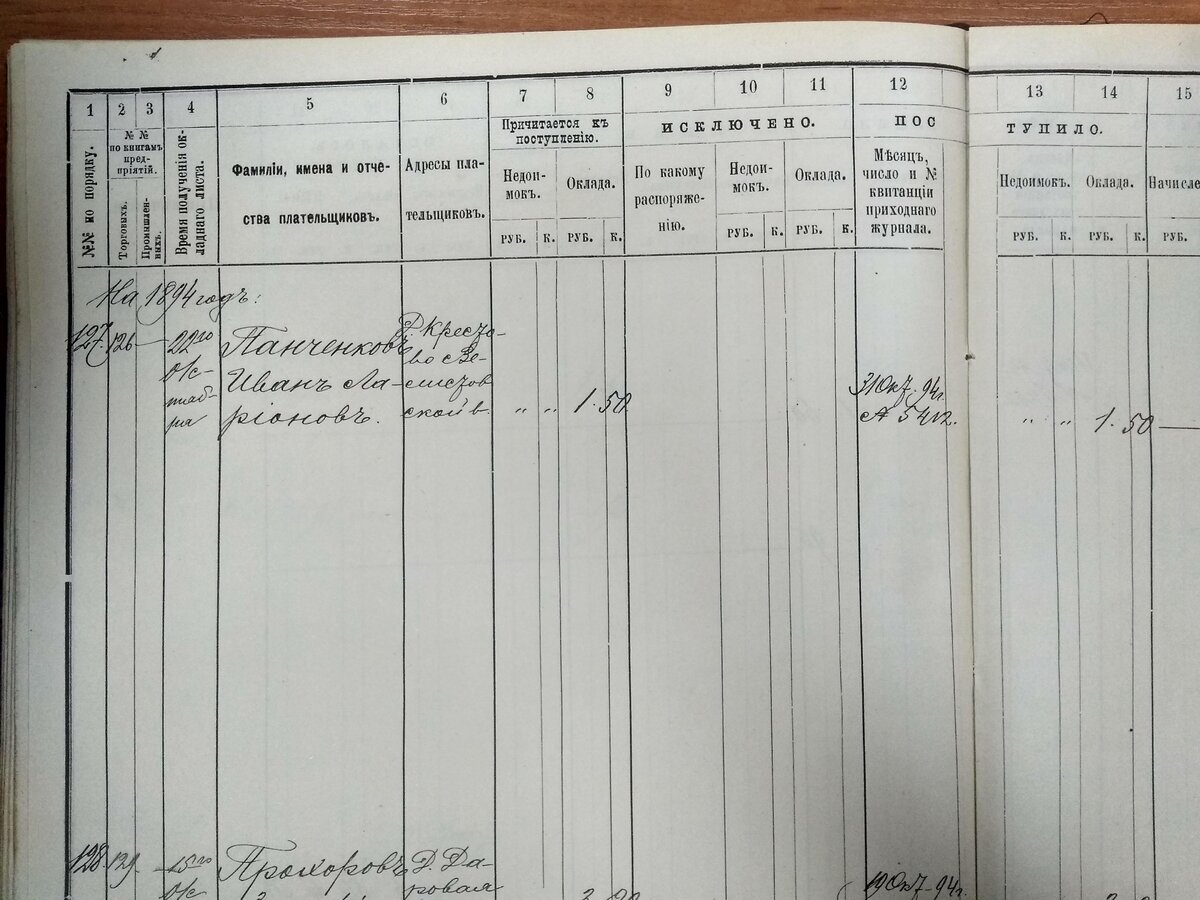 1 2 3 4 5 6 7 8 9 10 11 12 13 14 15
№№ по порядку.
№ №
по книгамъ
пред-
пріятій.
Торговыхъ.
Промышлен-
ныхъ.
Время полученія ок-
ладнаго листа.
Фамиліи, имена и отче-
ства плательщиковъ.
Адресы пла-
тельщиковъ.
Причитается къ
поступленію.
Недои-
мокъ.
Оклада.
РУБ. К. РУБ. К.
ИСКЛЮЧЕНО.
По какому
распоряже-
нію.
Недои-
мокъ.
Оклада.
РУБ. К. РУБ. К.
ПОС
Мѣсяцъ,
число и №
квитанціи
приходнаго
журнала.
ТУПИЛО.
Недоимокъ. Оклада. Начисле
РУБ. К. РУБ. К. РУБ.
На 1894 годъ:
127. 126 — 22го
Ок-
тяб-
ря
Панченковъ
Иванъ Ла-
ріоновъ.
Д. Кресто-
во Ве-
скойв.
„ „ 1. 50
31 Окт. 94г.
№ 5412.
„ „ 1. 50 —
128. 129. — 15го
Ок
Прохоровъ
Д. Да-
ровая
19 Окт. 94г.